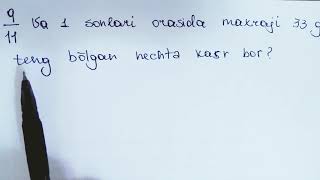 9/11 va 1 sonlari orasida maxraji 33 g
teng bõlgan nechta kasr bor?